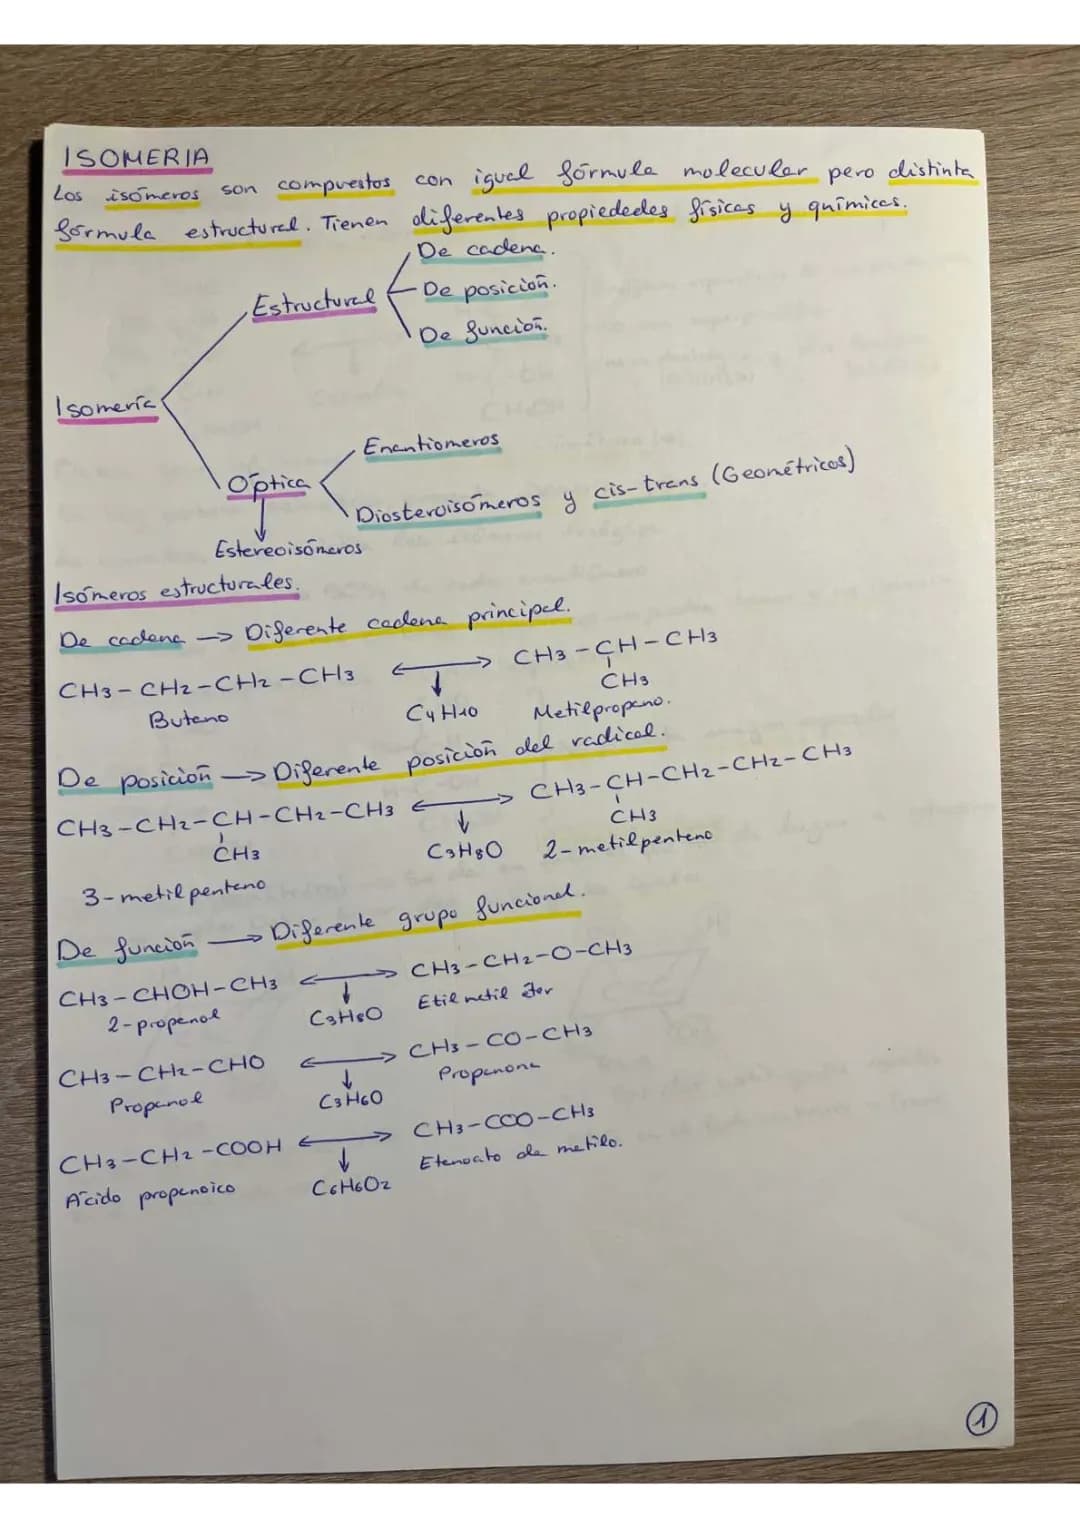 ISOMERIA
Los isómeros son compuestos con igual fórmula molecular pero distinta
fórmula estructural. Tienen diferentes propiedades físicas y químicas.
De cadena.
Estructural De posición.
De función.
Isomería
Enantiomeros
Óptica
Diosteroisómeros y cis-trans (Geométricos)
Estereoisómeros
Isómeros estructurales.
De cadena → Diferente cadena principal.
CH3-CH2-CH2-CH3 ↔ CH3-CH-CH3
CH3
Butano C4H10 Metilpropano.
De posición → Diferente posición del radical.
CH3-CH2-CH-CH2-CH3 ↔ CH3-CH-CH2-CH2-CH3
CH3 CH3
3-metilpentano C3H8O 2-metilpentano
De función → Diferente grupo funcional.
CH3-CHOH-CH3 ↔ CH3-CH2-O-CH3
2-propanol C3H8O Etil metil éter
CH3-CH2-CHO ↔ CH3-CO-CH3
Propanal C3H6O Propanona
CH3-CH2-COOH ↔ CH3-COO-CH3
Ácido propanoico C6H6O2 Etanoato de metilo.
1